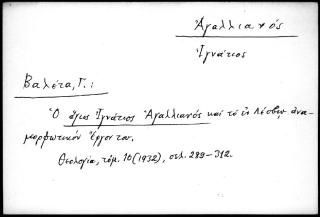 Ἀγαλλιανός
Ἰγνάτιος
Βαλέτα, Γ.:
Ὁ ἅγιος Ἰγνάτιος Ἀγαλλιανός καί τό ἐν Λέσβῳ ἀνα-
μορφωτικόν ἔργον του.
Θεολογία, τόμ. 10 (1932), σελ. 289-312.